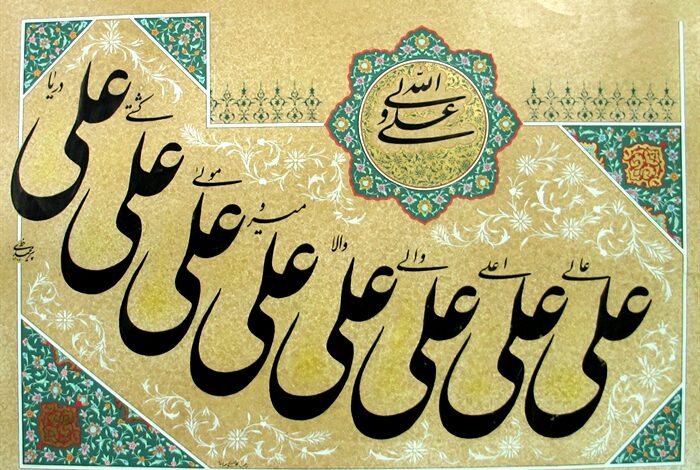 علی ولی الله
علی عالی علی اعلی علی والی علی والا علی میر و علی مولی علی کشتی علی دریا